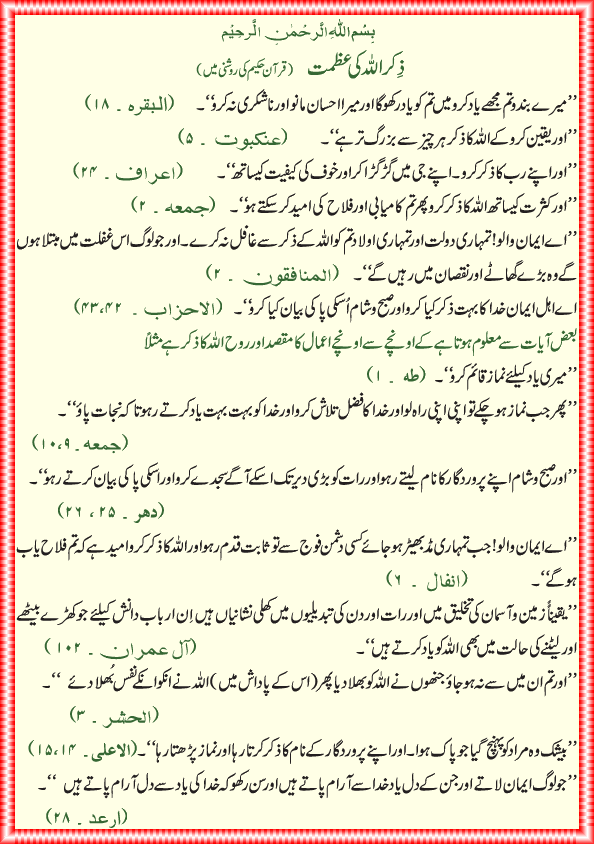 بِسْمِ اللهِ الرَّحْمٰنِ الرَّحِيْمِ
ذِکر اللہ کی عظمت (قرآن حکیم کی روشنی میں)
’’میرے بندو تم مجھے یاد کرو میں تم کو یاد رکھوگا اور میرا احسان مانو اور ناشکری نہ کرو‘‘۔ (البقرہ ۔ ۱۸)
’’اور یقین کرو کے اللہ کا ذکر ہر چیز سے بزرگ تر ہے‘‘۔ (عنکبوت ۔ ۵)
’’اور اپنے رب کا ذکر کرو۔ اپنے جی میں گڑ گڑا کر اور خوف کی کیفیت کیساتھ‘‘۔ (اعراف ۔ ۲۴)
’’اور کثرت کیساتھ اللہ کا ذکر کرو پھر تم کامیابی اور فلاح کی امید کر سکتے ہو‘‘۔ (جمعہ ۔ ۲)
’’اے ایمان والو! تمہاری دولت اور تمہاری اولاد تم کو اللہ کے ذکر سے غافل نہ کرے۔ اور جو لوگ اس غفلت میں مبتلا ہوں
گے وہ بڑے گھاٹے اور نقصان میں رہیں گے‘‘۔ (المنافقون ۔ ۲)
اے اہل ایمان خدا کا بہت ذکر کیا کرو اور صبح و شام اُسکی پاکی بیان کیا کرو‘‘۔ (الاحزاب ۔ ۴۳،۴۲)
بعض آیات سے معلوم ہوتا ہے کے اونچے سے اونچے اعمال کا مقصد اور روح اللہ کا ذکر ہے مثلاً
’’میری یاد کیلئے نماز قائم کرو‘‘۔ (طہ ۔ ۱)
’’پھر جب نماز ہو چکے تو اپنی اپنی راہ لو اور خدا کا فضل تلاش کرو اور خدا کو بہت بہت یاد کرتے رہو تا کہ نجات پاؤ‘‘۔
(جمعہ۔۱۰،۹)
’’اور صبح و شام اپنے پروردگار کا نام لیتے رہو اور رات کو بڑی دیر تک اسکے آگے سجدے کرو اور اسکی پاکی بیان کرتے رہو‘‘۔
(دھر ۔ ۲۵، ۲۶)
’’اے ایمان والو! جب تمہاری مڈبھیڑ ہو جائے کسی دشمن فوج سے تو ثابت قدم رہو اور اللہ کا ذکر کرو امید ہے کہ تم فلاح یاب
ہو گے‘‘۔ (انفال ۔ ۶)
’’یقیناً زمین و آسمان کی تخلیق میں اور رات اور دن کی تبدیلیوں میں کھلی نشانیاں ہیں اِن ارباب دانش کیلئے جو کھڑے بیٹھے
اور لیٹنے کی حالت میں بھی اللہ کو یاد کرتے ہیں‘‘۔ (آل عمران ۔ ۱۰۲)
’’اور تم ان میں سے نہ ہو جاؤ جنھوں نے اللہ کو بھلا دیا پھر (اس کے پاداش میں) اللہ نے انکو انکے نفس بُھلا دئے ‘‘۔
(الحشر ۔ ۳)
’’بیشک وہ مراد کو پہنچ گیا جو پاک ہوا۔ اور اپنے پروردگار کے نام کا ذکر کرتا رہا اور نماز پڑھتا رہا‘‘۔ (الاعلی۔ ۱۵،۱۴)
’’جو لوگ ایمان لاتے اور جن کے دل یاد خدا سے آرام پاتے ہیں اور سن رکھو کہ خدا کی یاد سے دل آرام پاتے ہیں ‘‘۔
(ارعد ۔ ۲۸)